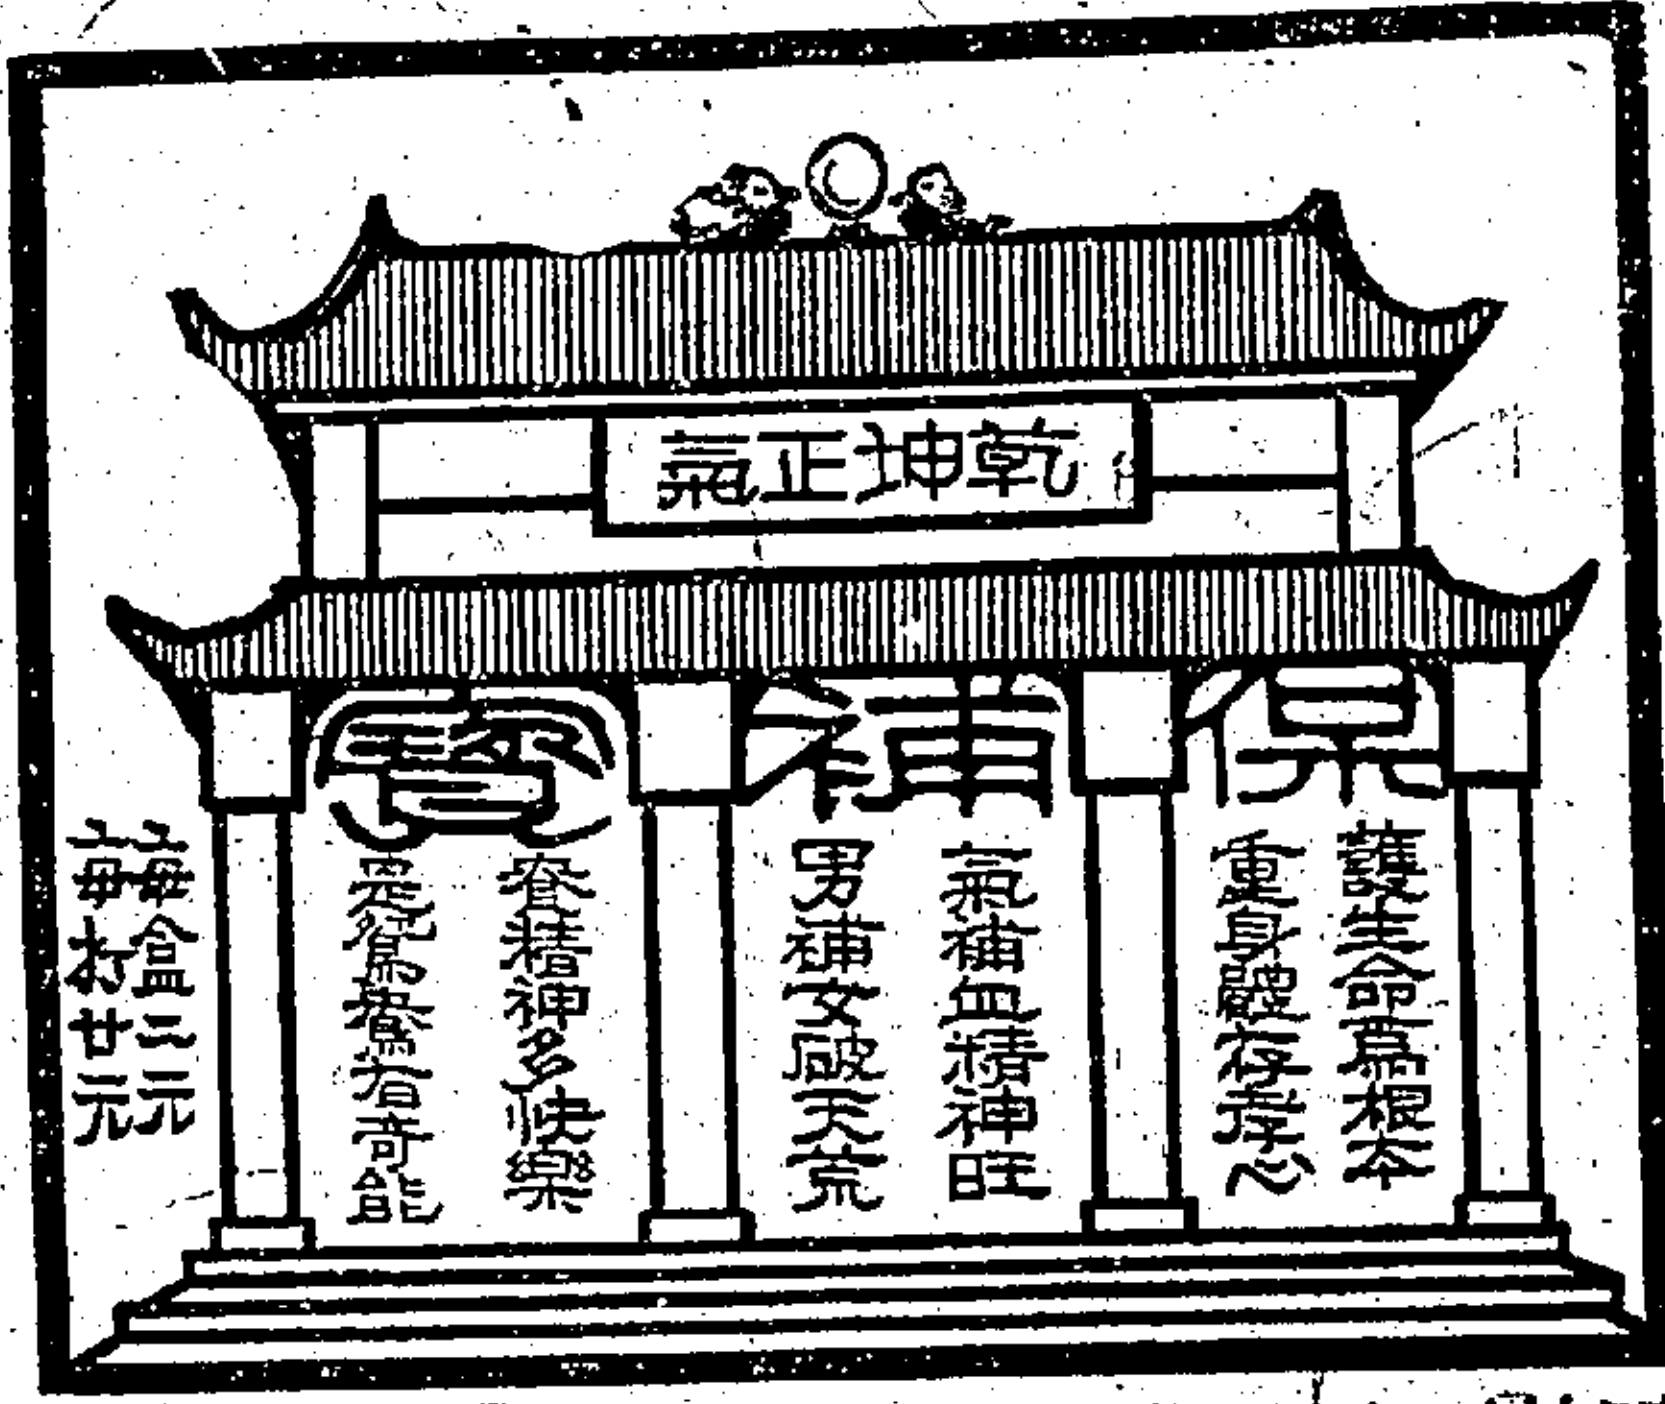 乾坤正氣
保補寶
護生命爲根本
重身體存孝心
氣補血精神旺
男補女破天荒
養精神多快樂
鴛鴦奇能
每盒二元
每打廿元